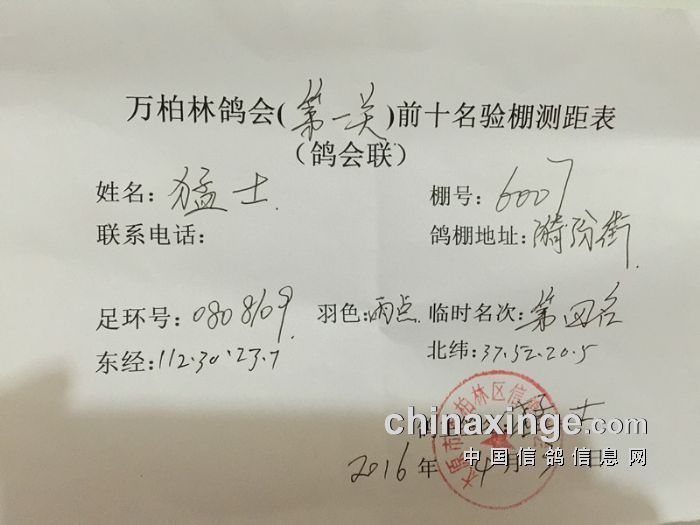 万柏林鸽会(第一关)前十名验棚测距表
(鸽会联)
姓名：猛士
棚号：6007
联系电话：
鸽棚地址：漪汾街
足环号：0808109
羽色：雨点
临时名次：第四名
东经：112.30.23.7
北纬：37.52.20.5
太原市万柏林区信鸽
chinaxinge.com
中国信鸽信息网
2016年4月 日